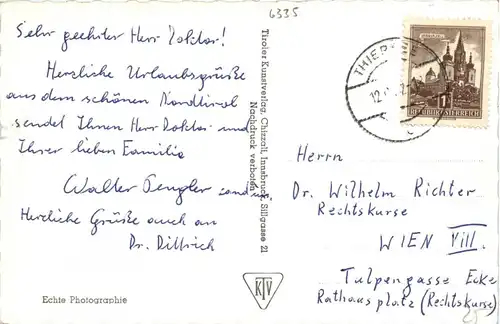 6335
Sehr geehrter Herr Doktor!
Herzliche Urlaubsgrüße
aus dem schönen Nordtirol
sendet Ihnen Herr Doktor und
Ihrer lieben Familie
Walter
Herzliche Grüße auch an
Dr. Dittrich
Echte Photographie
Tiroler Kunstverlag Chizzali, Innsbruck, Sillgasse 21
Nachdruck verboten
KTV
THIERSEE
12.
REPUBLIK ÖSTERREICH
Herrn
Dr. Wilhelm Richter
Rechtskurse
WIEN VIII.
Tulpengasse Ecke
Rathausplatz (Rechtskurse)